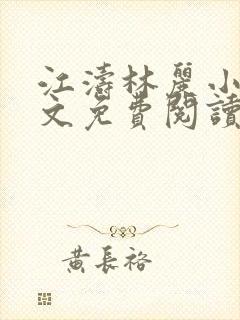 江濤林麗小
文免費閱讀
黃長裕